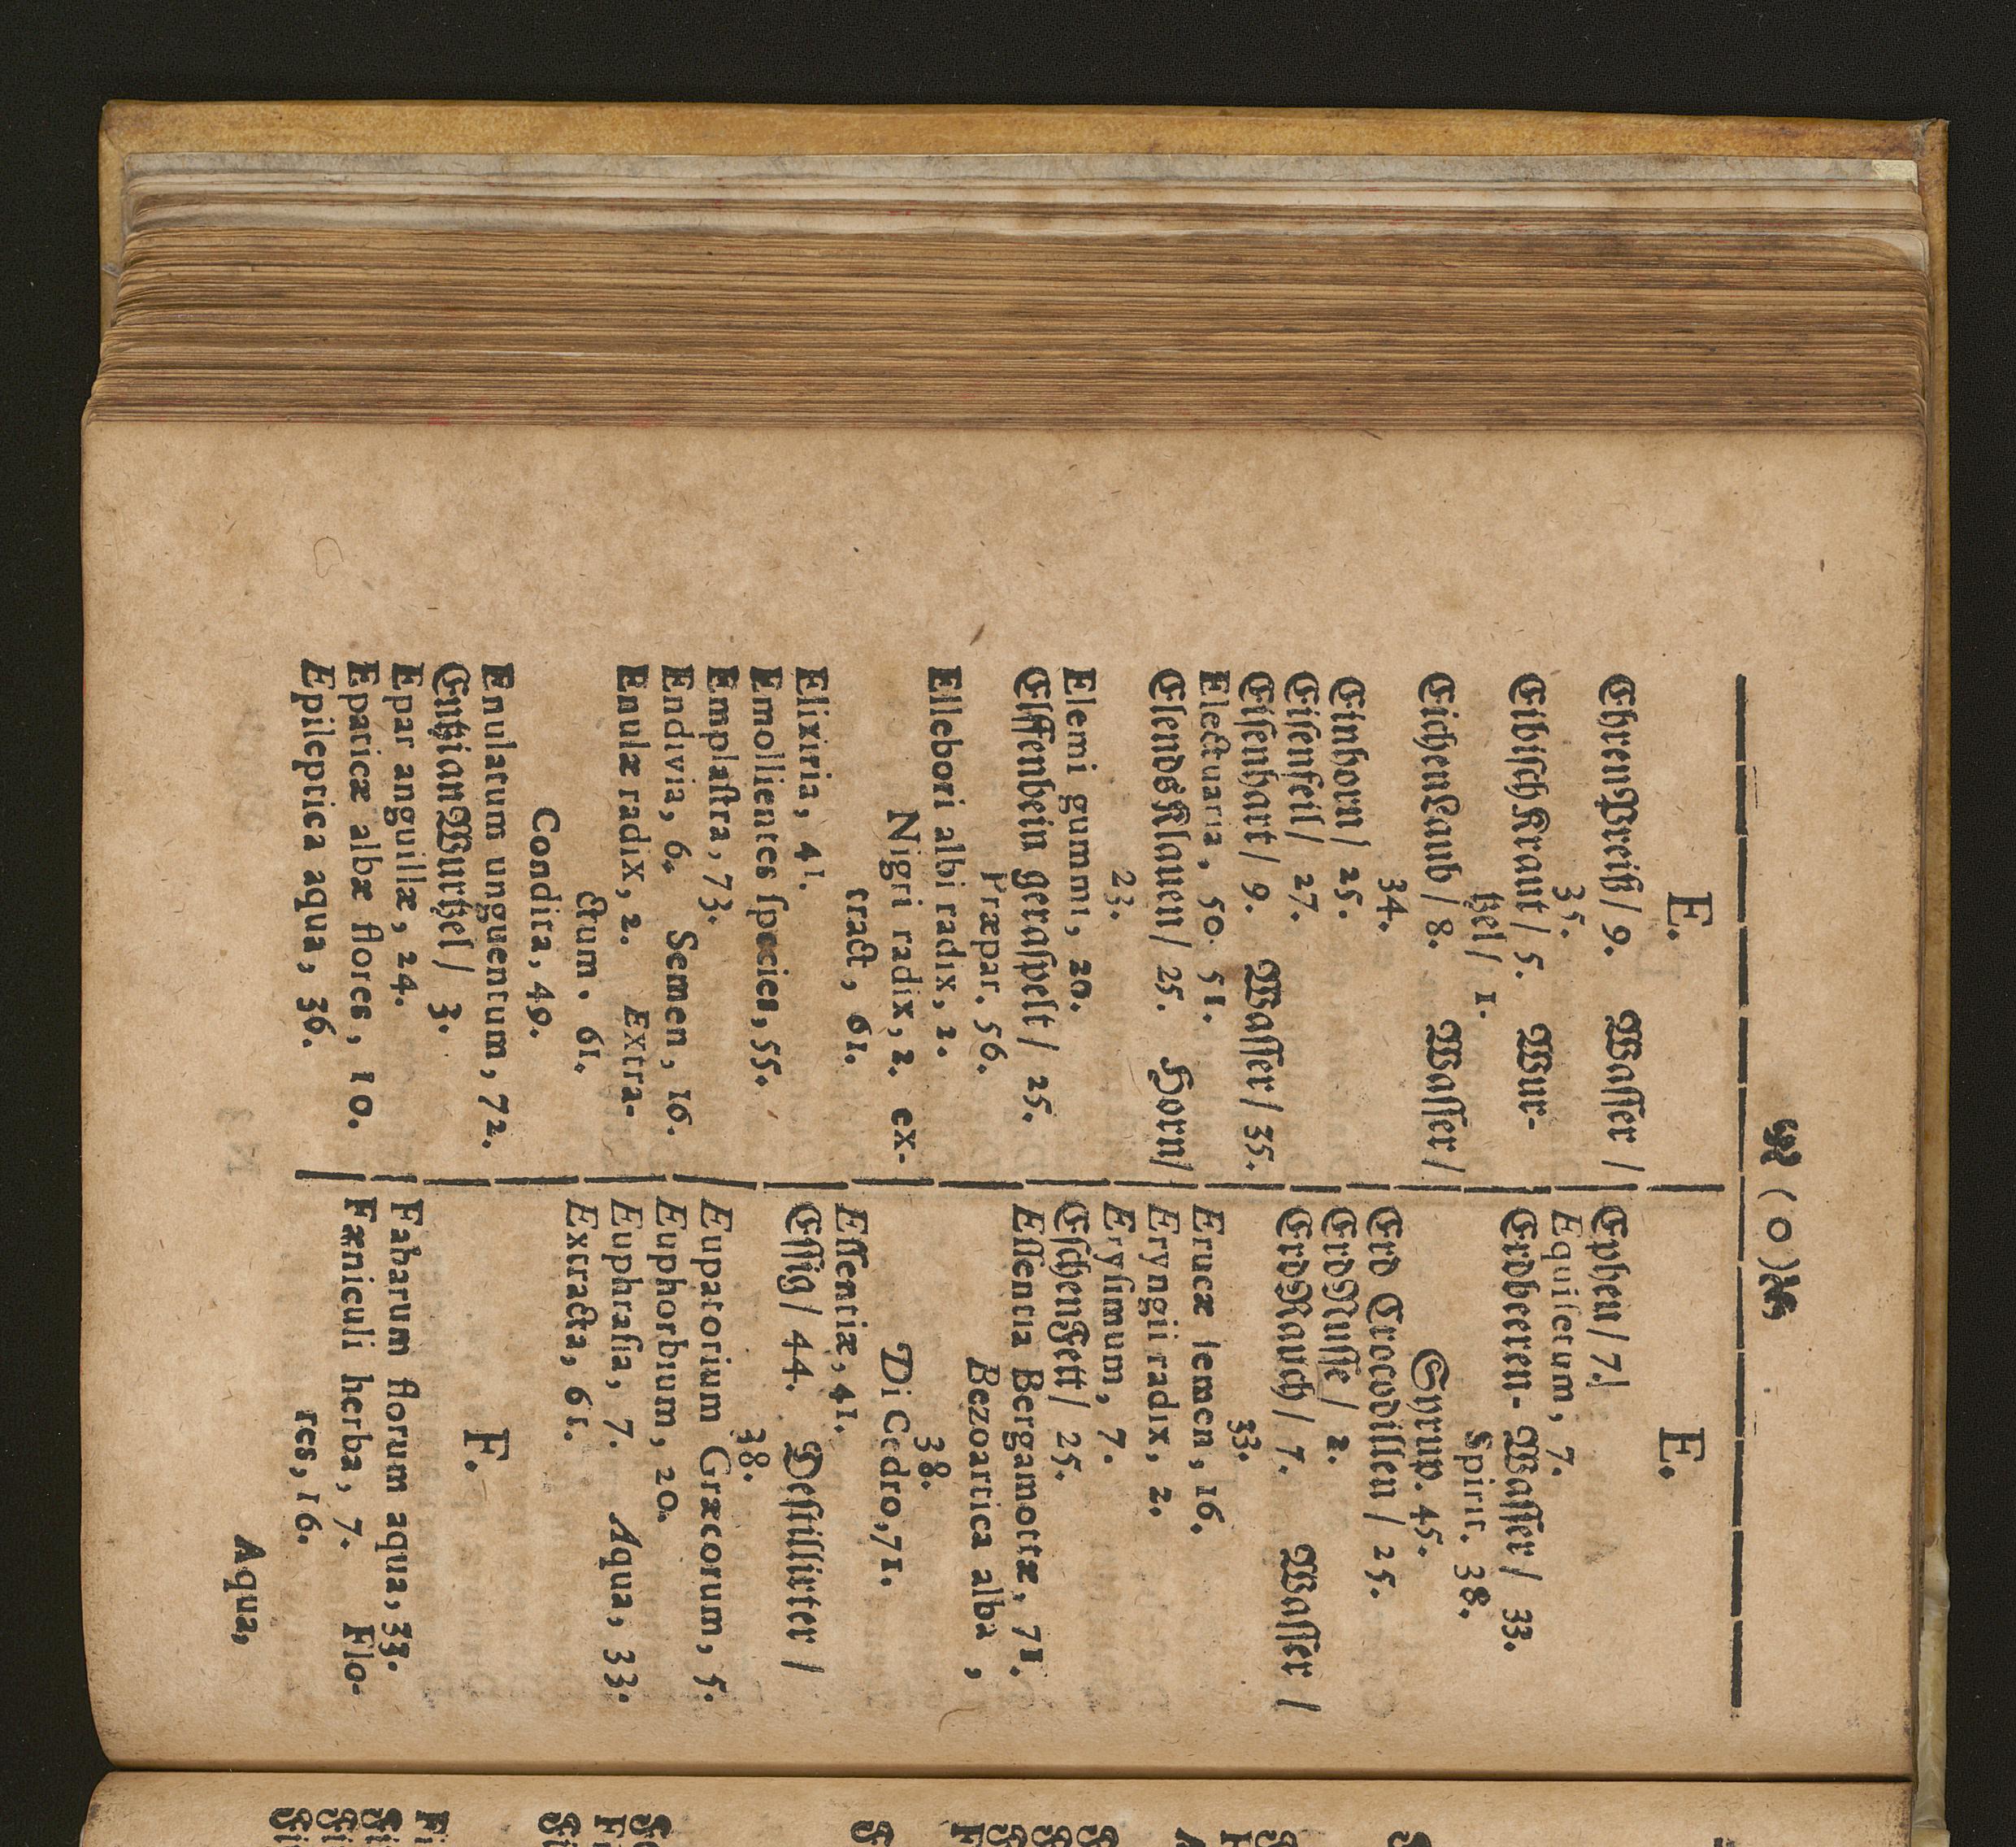 ( o )
E.
EhrenPreiß / 9. Wasser /
35.
EibischKraut / 5. Wur-
tzel / 1.
EichenLaub / 8. Wasser /
34.
Einhorn / 25.
Eisenfeil / 27.
Eisenhart / 9. Wasser / 35.
Electuaria, 50. 51.
ElendsKlauen / 25. Horn /
23.
Elemi gummi, 20.
Elffenbein geraspelt / 25.
Præpar. 56.
Ellebori albi radix, 2.
Nigri radix, 2. ex-
tract, 61.
Elixiria, 41.
Emollientes species, 55.
Emplastra, 73.
Endivia, 6. Semen, 16.
Enulæ radix, 2. Extra-
ctum. 61.
Condita, 49.
Enulatum unguentum, 72.
EntzianWurtzel / 3.
Epar anguillæ, 24.
Epaticæ albæ flores, 10.
Epileptica aqua, 36.
E.
Epheu / 7.
Equisetum, 7.
Erdbeeren-Wasser / 33.
Spirit. 38.
Syrup. 45.
Erd Crocodillen / 25.
ErdNüsse / 2.
ErdRauch / 7. Wasser /
33.
Erucæ semen, 16.
Eryngii radix, 2.
Erysimum, 7.
EschenFett / 25.
Essentia Bergamottæ, 71.
Bezoartica alba,
38.
Di Cedro, 71.
Essentiæ, 41.
Essig / 44. Destillirter /
38.
Eupatorium Græcorum, 5.
Euphorbium, 20.
Euphrasia, 7. Aqua, 33.
Extracta, 61.
F.
Fabarum florum aqua, 33.
Fæniculi herba, 7. Flo-
res, 16.
Aqua,